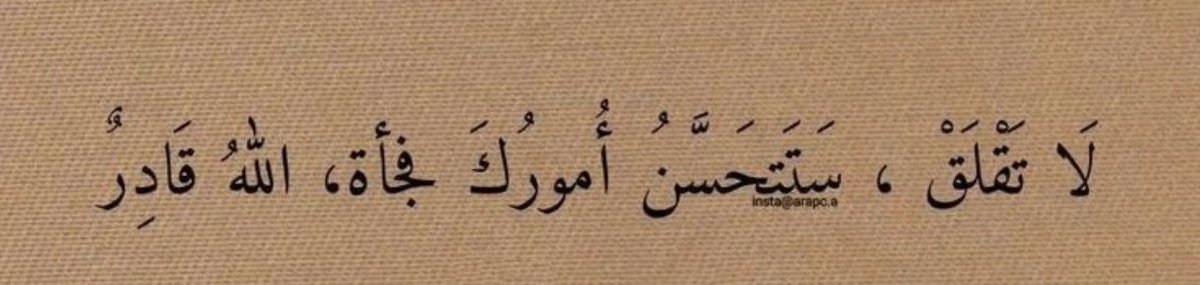 لَا تَقْلَقْ ، سَتَتَحَسَّنُ أُمورُكَ فجأة، اللهُ قَادِرٌ
insta@arapc.a